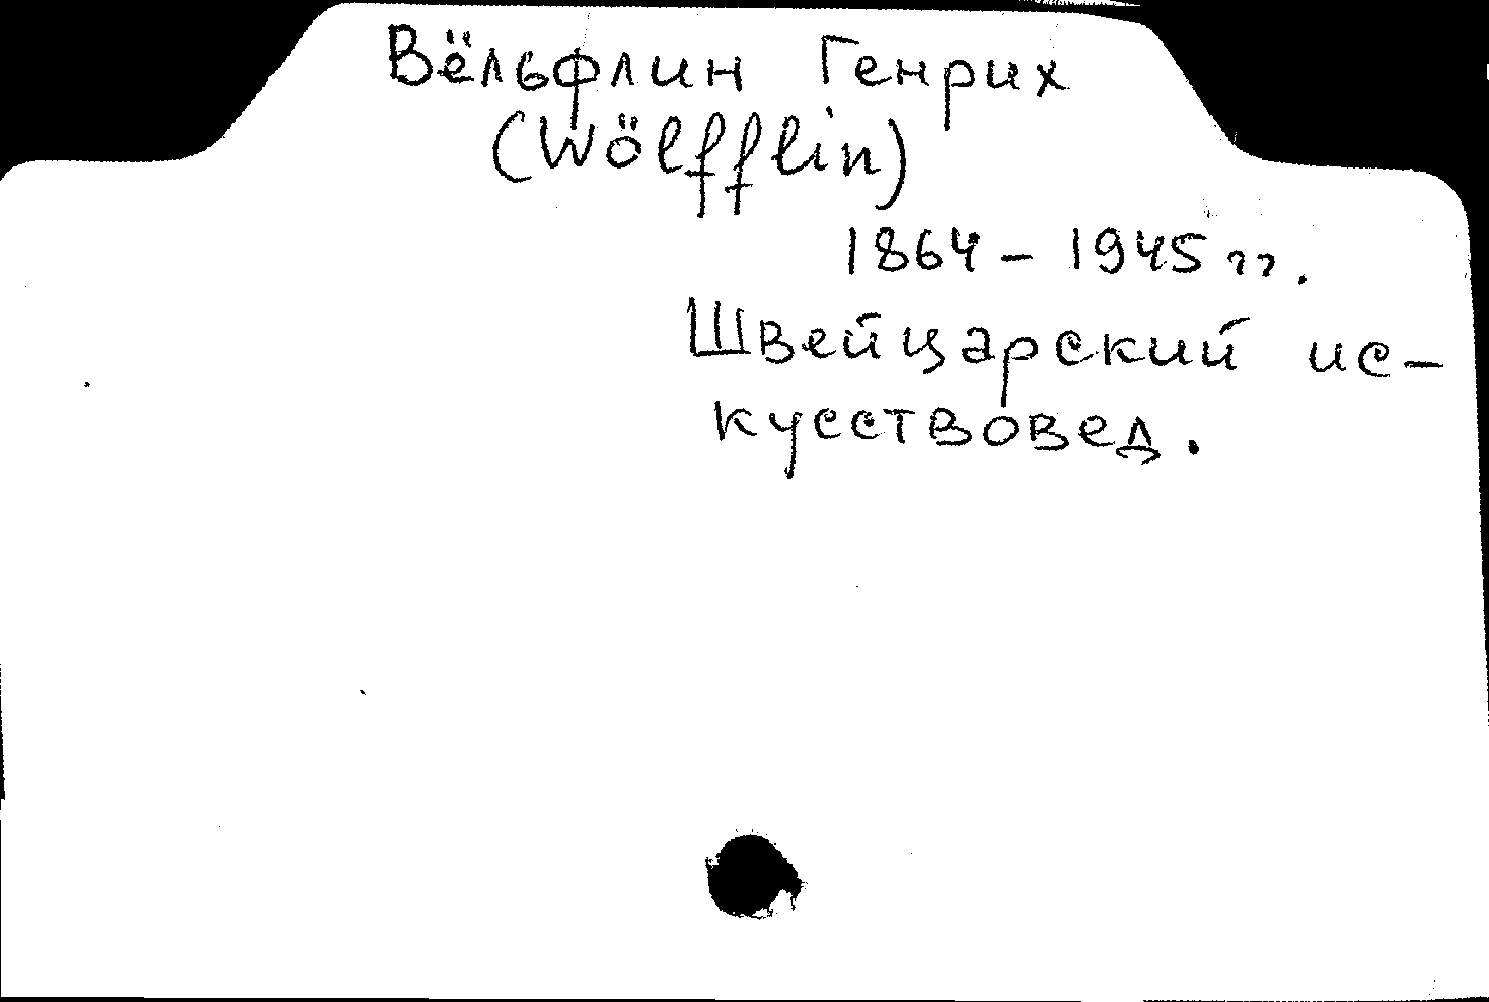 Вёльфлин Генрих
(Wölfflin)
1864 – 1945 гг.
Швейцарский ис-
кусствовед.